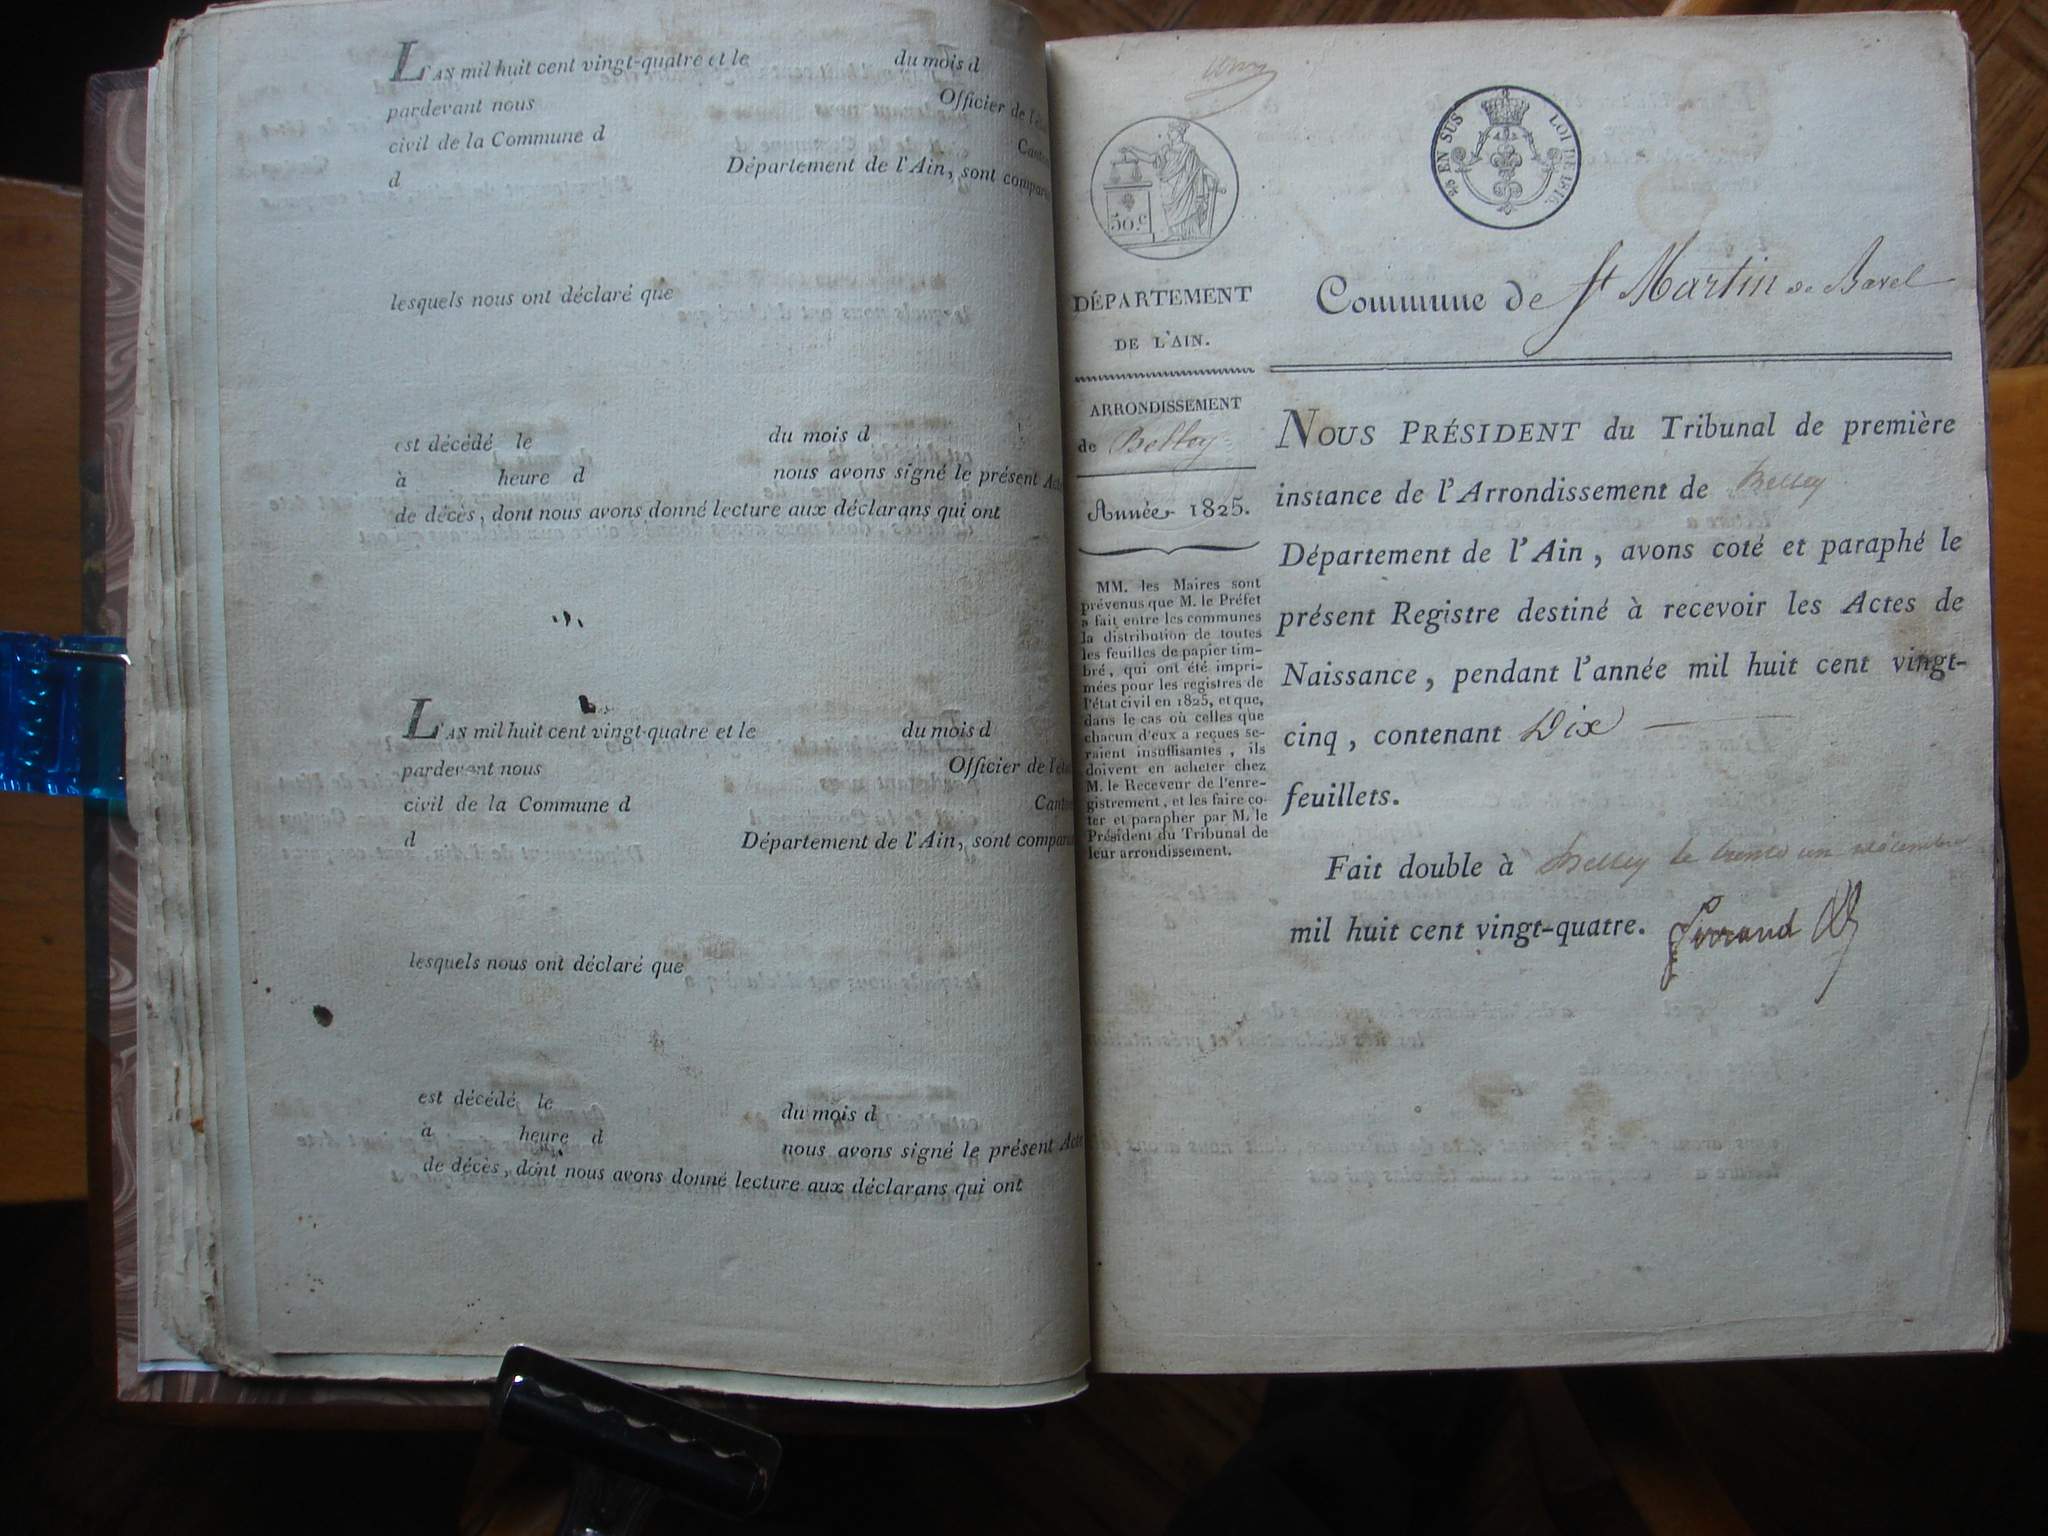 L'AN mil huit cent vingt-quatre et le du mois d
pardevant nous Officier de l'éta
civil de la Commune d Canton
d Département de l'Ain, sont compar
lesquels nous ont déclaré que
est décédé le du mois d
à heure d nous avons signé le présent Acte
de décès, dont nous avons donné lecture aux déclarans qui ont
L'AN mil huit cent vingt-quatre et le du mois d
pardevant nous Officier de l'éta
civil de la Commune d Canton
d Département de l'Ain, sont compar
lesquels nous ont déclaré que
est décédé le du mois d
à heure d nous avons signé le présent Acte
de décès, dont nous avons donné lecture aux déclarans qui ont
50.c
25 EN SUS LOI DE 1816.
DÉPARTEMENT
DE L'AIN.
ARRONDISSEMENT
de Belley
Année 1825.
MM. les Maires sont
prévenus que M. le Préfet
a fait entre les communes
la distribution de toutes
les feuilles de papier tim-
bré, qui ont été impri-
mées pour les registres de
l'état civil en 1825, et que,
dans le cas où celles que
chacun d'eux a reçues se-
raient insuffisantes, ils
doivent en acheter chez
M. le Receveur de l'enre-
gistrement, et les faire co-
ter et parapher par M. le
Président du Tribunal de
leur arrondissement.
Commune de St Martin de Bavel
NOUS PRÉSIDENT du Tribunal de première
instance de l'Arrondissement de Belley
Département de l'Ain, avons coté et paraphé le
présent Registre destiné à recevoir les Actes de
Naissance, pendant l'année mil huit cent vingt-
cinq, contenant Dix
feuillets.
Fait double à Belley le trente un décembre
mil huit cent vingt-quatre.